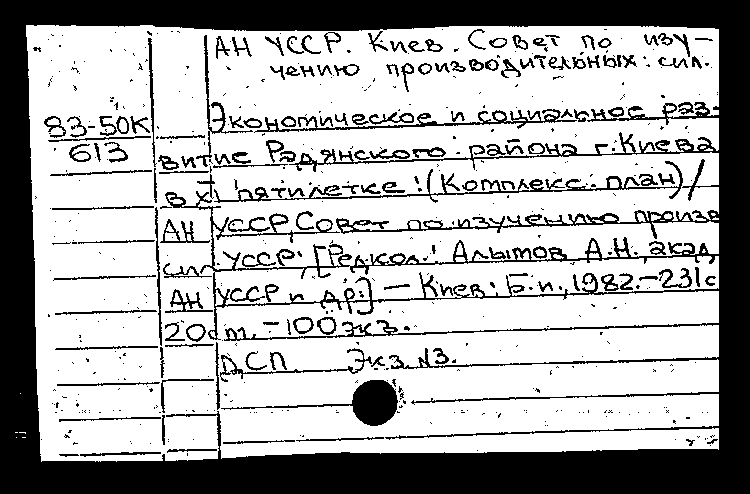 АН УССР. Киев. Совет по изу-
чению производительных сил.
83-50К
613
Экономическое и социальное раз-
витие Радянского района г. Киева
в XI пятилетке: (Комплекс. план) /
АН УССР, Совет по изучению произв
сил УССР; [Редкол.: Алымов А.Н., акад.
АН УССР и др.] — Киев: Б.и., 1982.-231с
20см. - 100 экз.
ДСП. Экз. №3.